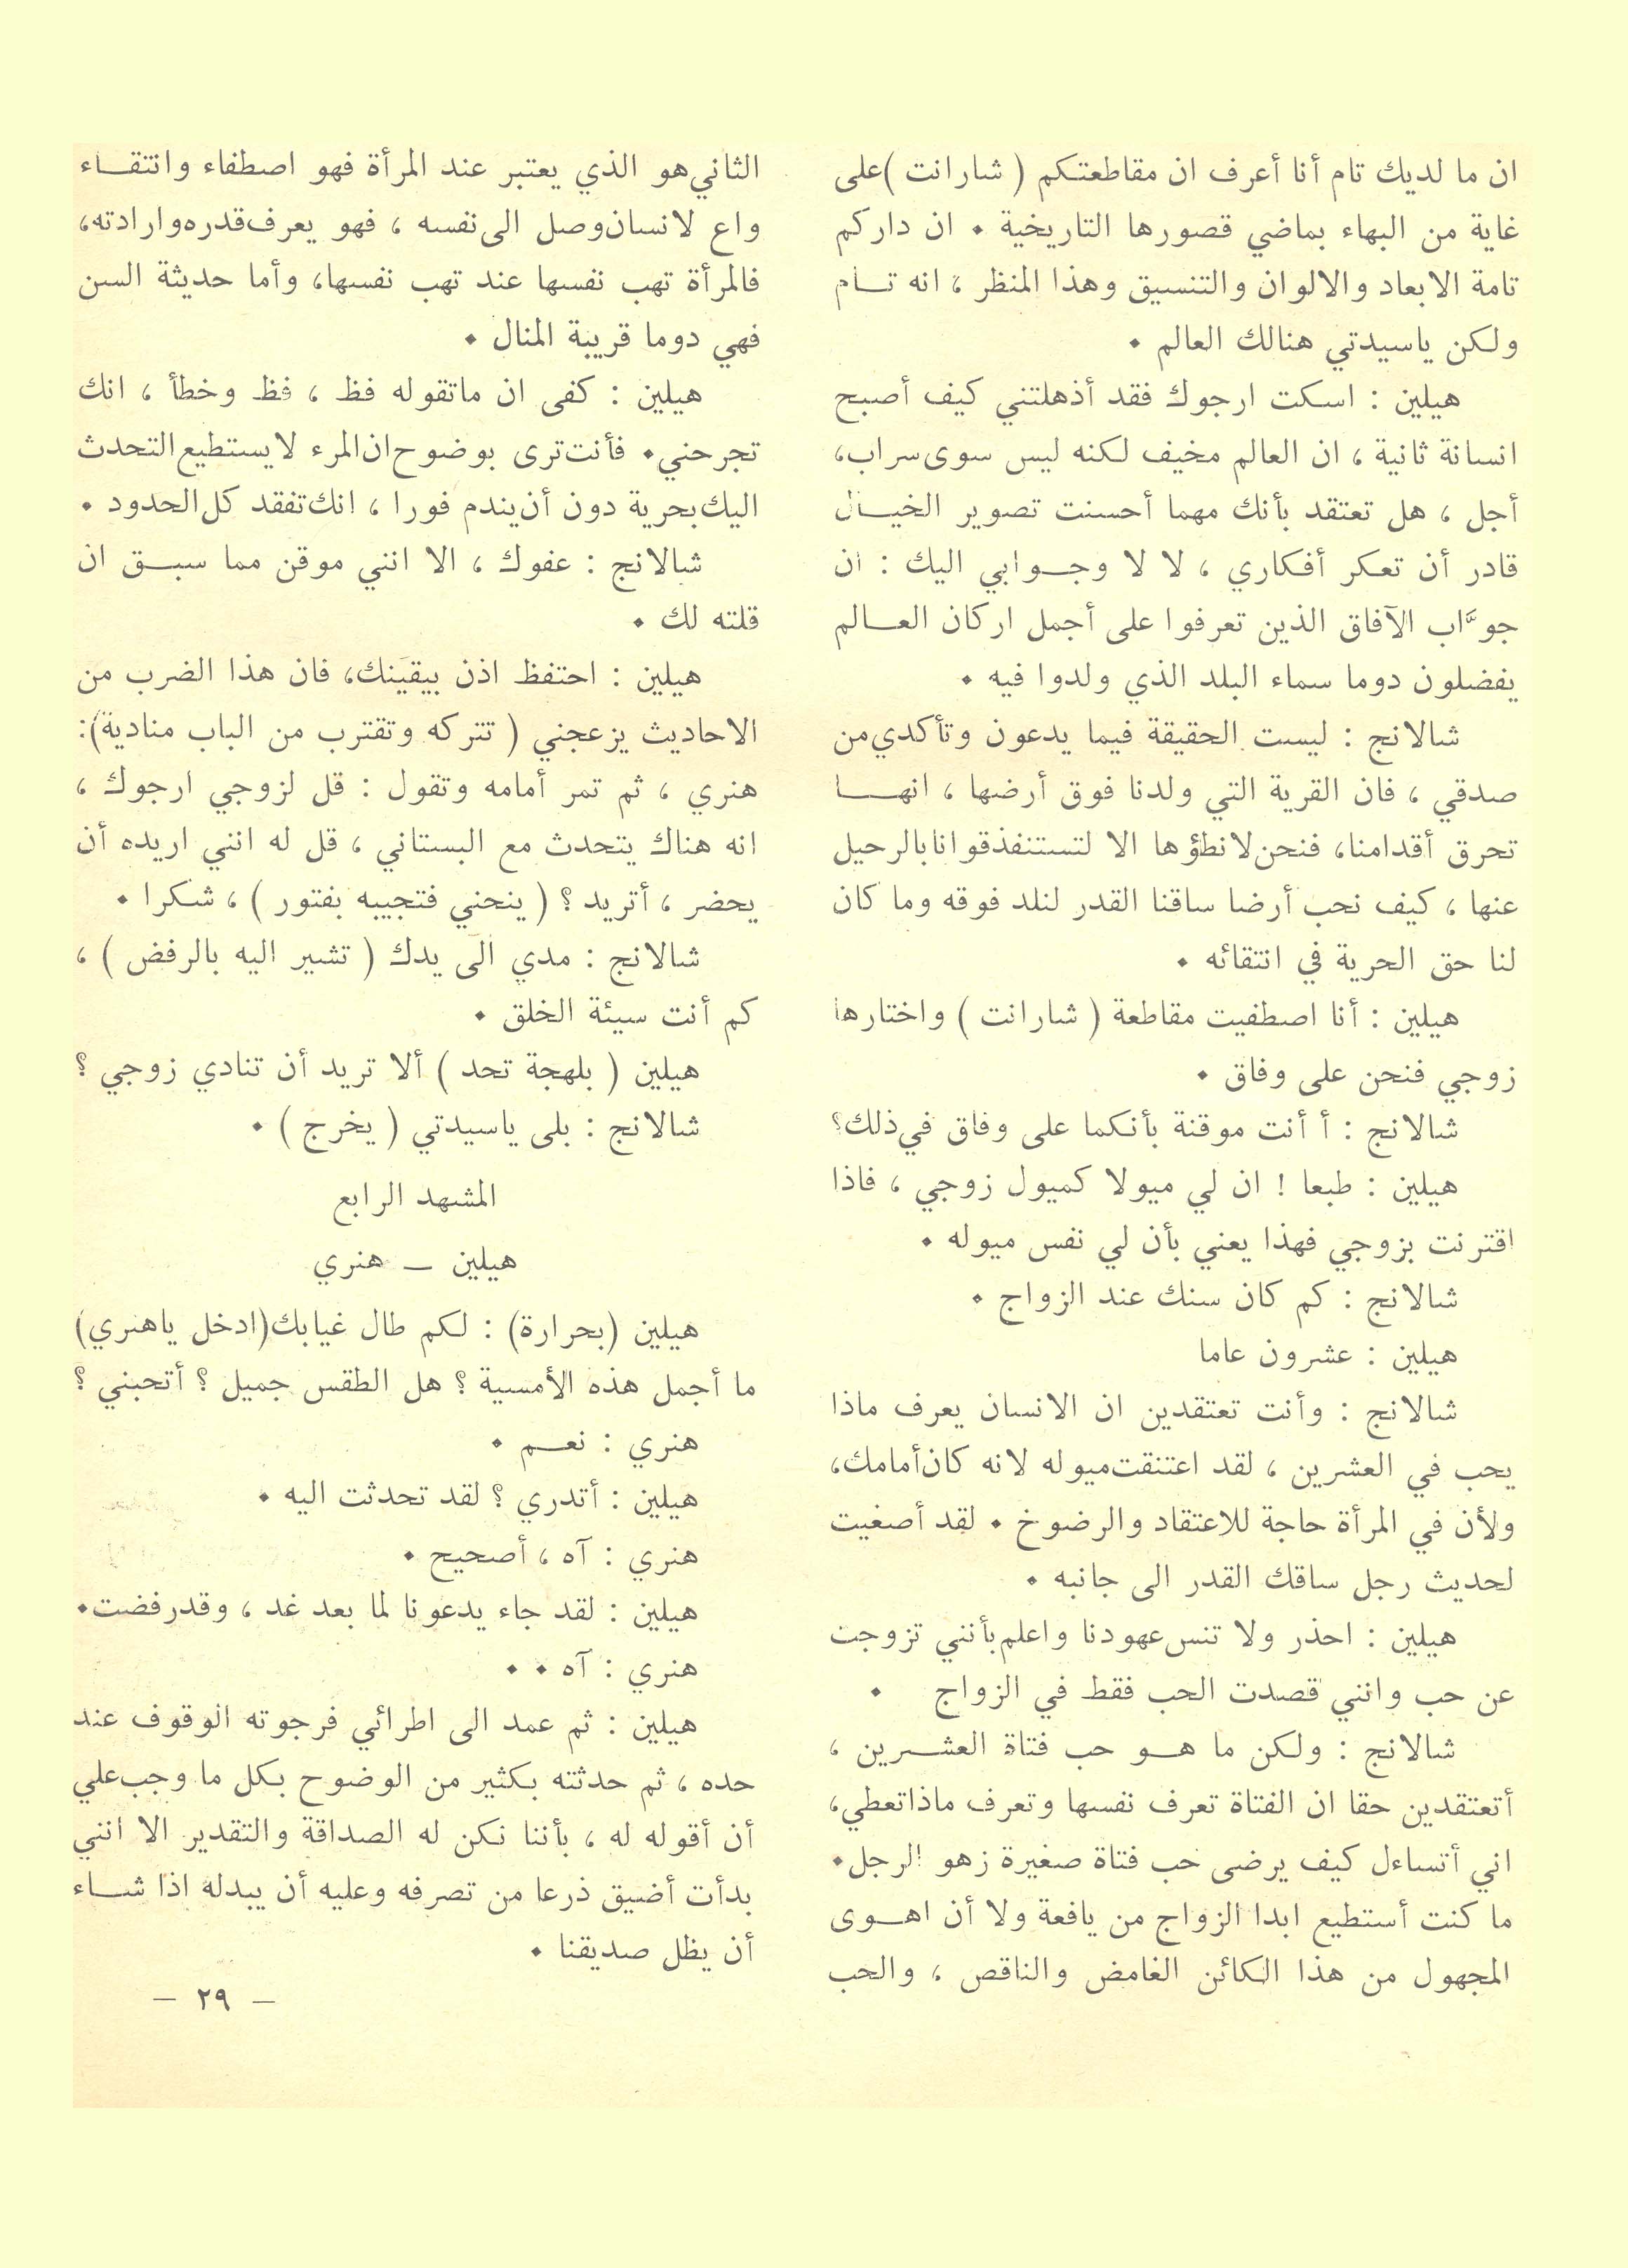 ان ما لديك تام أنا أعرف ان مقاطعتكم ( شارانت )على
غاية من البهاء بماضي قصورها التاريخية . ان داركم
تامة الابعاد والالوان والتنسيق وهذا المنظر ، انه تـام
ولكن ياسيدتي هنالك العالم .
هيلين : اسكت ارجوك فقد أذهلتني كيف أصبح
انسانة ثانية ، ان العالم مخيف لكنه ليس سوى سراب،
أجل ، هل تعتقد بأنك مهما أحسنت تصوير الخيـال
قادر أن تعكر أفكاري ، لا لا وجـوابي اليك : ان
جوَّاب الآفاق الذين تعرفوا على أجمل اركان العـالم
يفضلون دوما سماء البلد الذي ولدوا فيه .
شالانج : ليست الحقيقة فيما يدعون وتأكدي من
صدقي ، فان القرية التي ولدنا فوق أرضها ، انهـا
تحرق أقدامنا، فنحن لانطؤها الا لتستنفذ قوانا بالرحيل
عنها ، كيف نحب أرضا ساقنا القدر لنلد فوقه وما كان
لنا حق الحرية في انتقائه .
هيلين : أنا اصطفيت مقاطعة ( شارانت ) واختارها
زوجي فنحن على وفاق .
شالانج : أ أنت موقنة بأنكما على وفاق في ذلك؟
هيلين : طبعا ! ان لي ميولا كميول زوجي ، فاذا
اقترنت بزوجي فهذا يعني بأن لي نفس ميوله .
شالانج : كم كان سنك عند الزواج .
هيلين : عشرون عاما
شالانج : وأنت تعتقدين ان الانسان يعرف ماذا
يحب في العشرين ، لقد اعتنقت ميوله لانه كان أمامك،
ولأن في المرأة حاجة للاعتقاد والرضوخ . لقد أصغيت
لحديث رجل ساقك القدر الى جانبه .
هيلين : احذر ولا تنس عهودنا واعلم بأنني تزوجت
عن حب وانني قصدت الحب فقط في الزواج .
شالانج : ولكن ما هـو حب فتاة العشـرين ،
أتعتقدين حقا ان الفتاة تعرف نفسها وتعرف ماذا تعطي،
اني أتساءل كيف يرضى حب فتاة صغيرة زهو الرجل.
ما كنت أستطيع ابدا الزواج من يافعة ولا أن اهـوى
المجهول من هذا الكائن الغامض والناقص ، والحب
الثاني هو الذي يعتبر عند المرأة فهو اصطفاء وانتقـاء
واع لانسان وصل الى نفسه ، فهو يعرف قدره وارادته،
فالمرأة تهب نفسها عند تهب نفسها، وأما حديثة السن
فهي دوما قريبة المنال .
هيلين : كفى ان ماتقوله فظ ، فظ وخطأ ، انك
تجرحني. فأنت ترى بوضوح ان المرء لايستطيع التحدث
اليك بحرية دون أن يندم فورا ، انك تفقد كل الحدود .
شالانج : عفوك ، الا انني موقن مما سبـق ان
قلته لك .
هيلين : احتفظ اذن بيقينك، فان هذا الضرب من
الاحاديث يزعجني ( تتركه وتقترب من الباب منادية):
هنري ، ثم تمر أمامه وتقول : قل لزوجي ارجوك ،
انه هناك يتحدث مع البستاني ، قل له انني اريده أن
يحضر ، أتريد ؟ ( ينحني فتجيبه بفتور ) ، شكرا .
شالانج : مدي الى يدك ( تشير اليه بالرفض ) ،
كم أنت سيئة الخلق .
هيلين ( بلهجة تحد ) ألا تريد أن تنادي زوجي ؟
شالانج : بلى ياسيدتي ( يخرج ) .
المشهد الرابع
هيلين ـ هنري
هيلين (بحرارة) : لكم طال غيابك(ادخل ياهنري)
ما أجمل هذه الأمسية ؟ هل الطقس جميل ؟ أتحبني ؟
هنري : نعـم .
هيلين : أتدري ؟ لقد تحدثت اليه .
هنري : آه ، أصحيح .
هيلين : لقد جاء يدعونا لما بعد غد ، وقد رفضت.
هنري : آه . .
هيلين : ثم عمد الى اطرائي فرجوته الوقوف عند
حده ، ثم حدثته بكثير من الوضوح بكل ما وجب علي
أن أقوله له ، بأننا نكن له الصداقة والتقدير الا انني
بدأت أضيق ذرعا من تصرفه وعليه أن يبدله اذا شـاء
أن يظل صديقنا .
– ٢٩ –